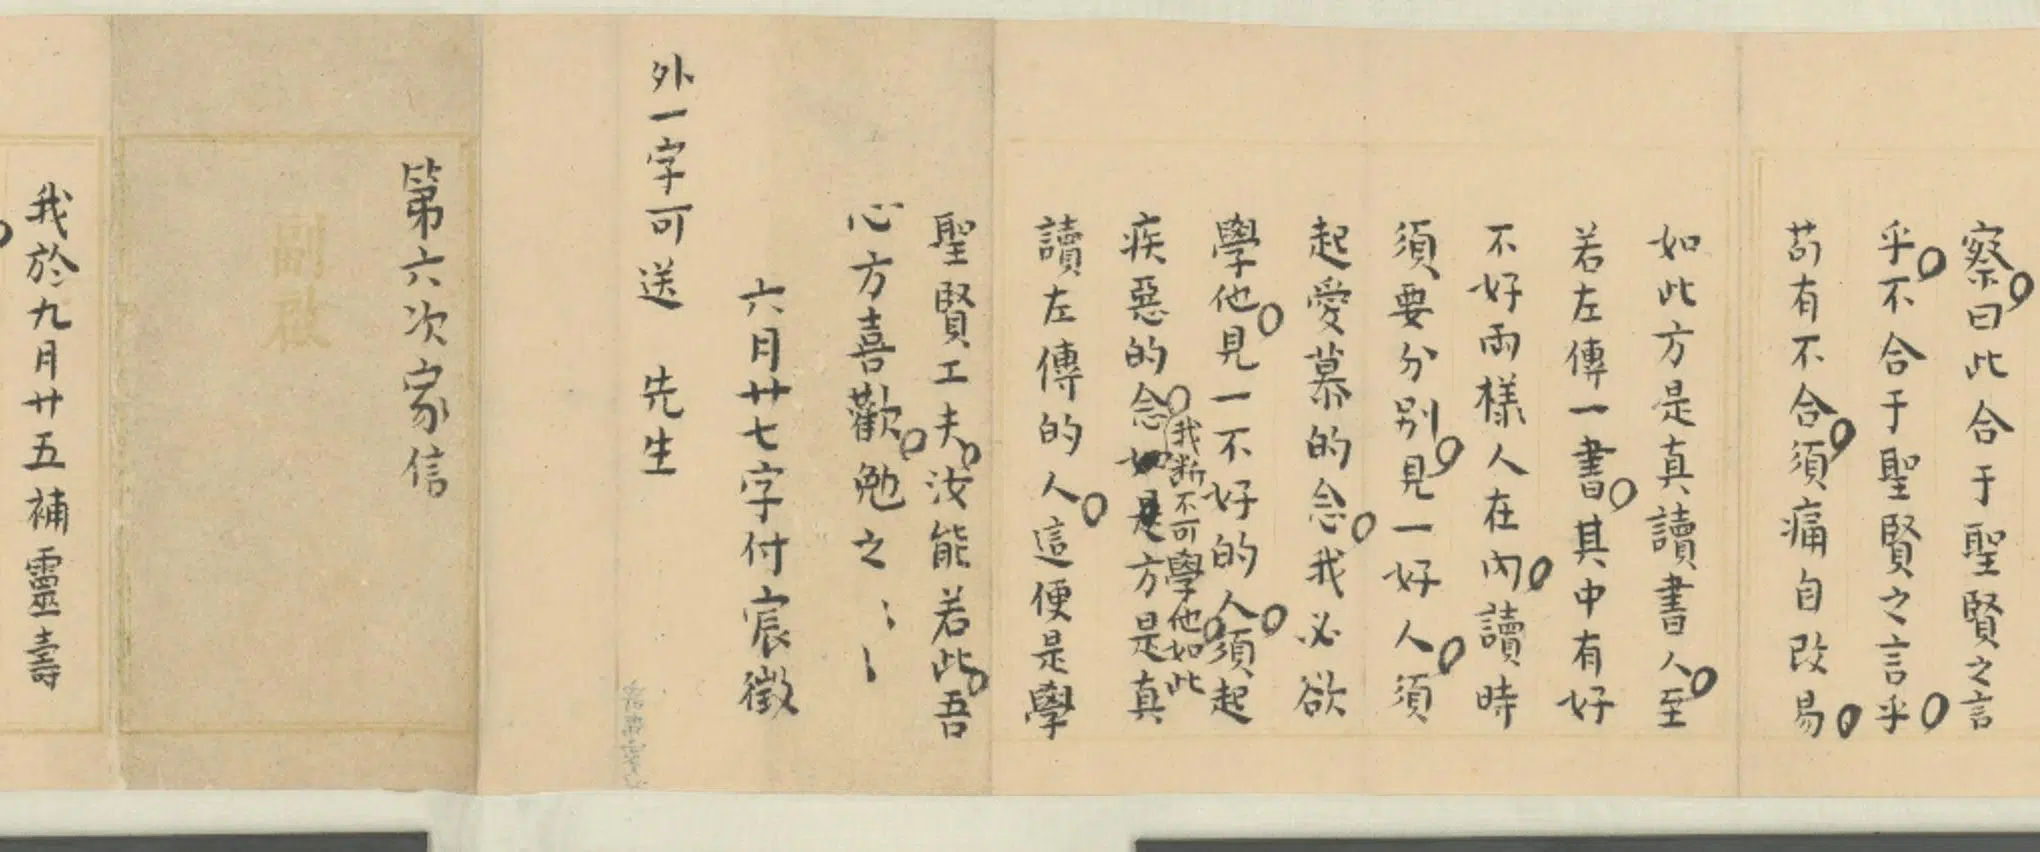 察曰此合于聖賢之言
乎不合于聖賢之言乎
苟有不合須痛自改易
如此方是真讀書人至
若左傳一書其中有好
不好兩樣人在內讀時
須要分別見一好人須
起愛慕的念我必欲
學他見一不好的人須起
疾惡的念我斷不可學他如此方是真
讀左傳的人這便是學
聖賢工夫汝能若此吾
心方喜歡勉之〻〻
六月廿七字付宸徵
外一字可送 先生
第六次家信
副啟
我於九月廿五補靈壽